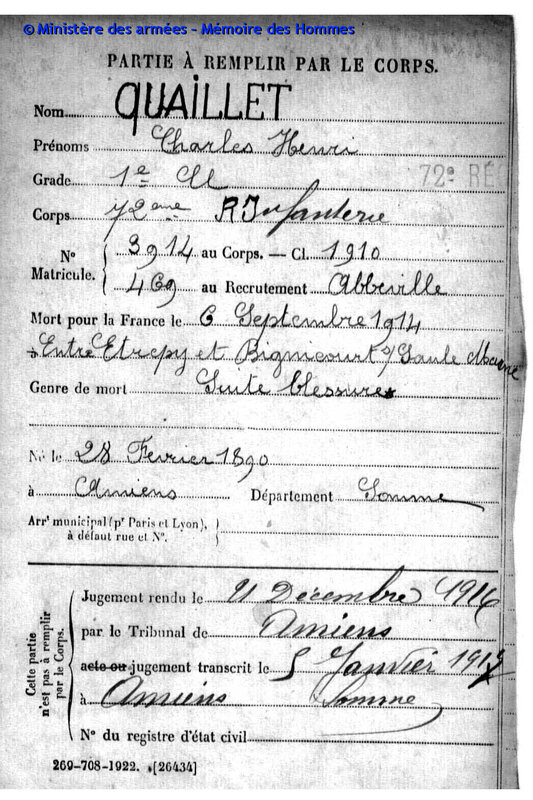 © Ministère des armées - Mémoire des Hommes
PARTIE À REMPLIR PAR LE CORPS.
Nom QUAILLET
Prénoms Charles Henri
Grade 1e Cl 72e RE
Corps 72ème R Infanterie
N° Matricule. 3914 au Corps. — Cl. 1910
469 au Recrutement Abbeville
Mort pour la France le 6 Septembre 1914
Entre Etrepy et Bignicourt s/ Saulx Marne
Genre de mort Suite blessures
Né le 28 Février 1890
à Amiens Département Somme
Arrt municipal (pr Paris et Lyon),
à défaut rue et N°.
Cette partie n'est pas à remplir par le Corps.
Jugement rendu le 21 Décembre 1916
par le Tribunal de Amiens
acte ou jugement transcrit le 5 Janvier 1917
à Amiens Somme
N° du registre d'état civil
269-708-1922. [26434]